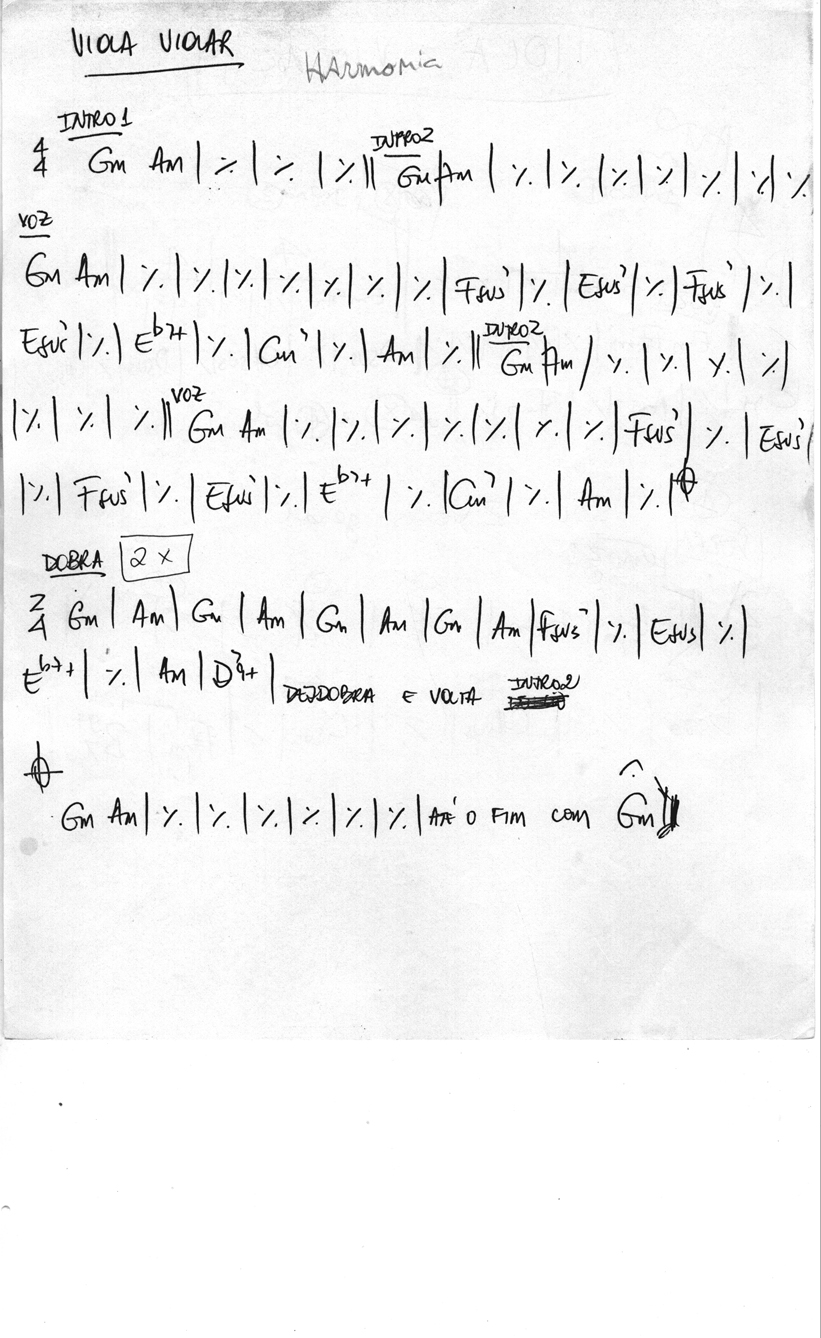 VIOLA VIOLAR
HArmonia
INTRO 1
4/4 Gm Am | ٪ | ٪ | ٪ || INTRO 2 Gm Am | ٪ | ٪ | ٪ | ٪ | ٪ | ٪ | ٪
VOZ
Gm Am | ٪ | ٪ | ٪ | ٪ | ٪ | ٪ | ٪ | Fsus7 | ٪ | Esus7 | ٪ | Fsus7 | ٪ |
Esus7 | ٪ | Eb7+ | ٪ | Cm7 | ٪ | Am | ٪ || INTRO 2 Gm Am | ٪ | ٪ | ٪ | ٪ |
| ٪ | ٪ | ٪ || VOZ Gm Am | ٪ | ٪ | ٪ | ٪ | ٪ | ٪ | ٪ | Fsus7 | ٪ | Esus7 |
| ٪ | Fsus7 | ٪ | Esus7 | ٪ | Eb7+ | ٪ | Cm7 | ٪ | Am | ٪ | 𝄌
DOBRA 2 x
2/4 Gm | Am | Gm | Am | Gm | Am | Gm | Am | Fsus7 | ٪ | Esus | ٪ |
Eb7+ | ٪ | Am | D7 9+ | DESDOBRA E VOLTA INTRO 2
𝄌
Gm Am | ٪ | ٪ | ٪ | ٪ | ٪ | ٪ | ATÉ O FIM COM Gm